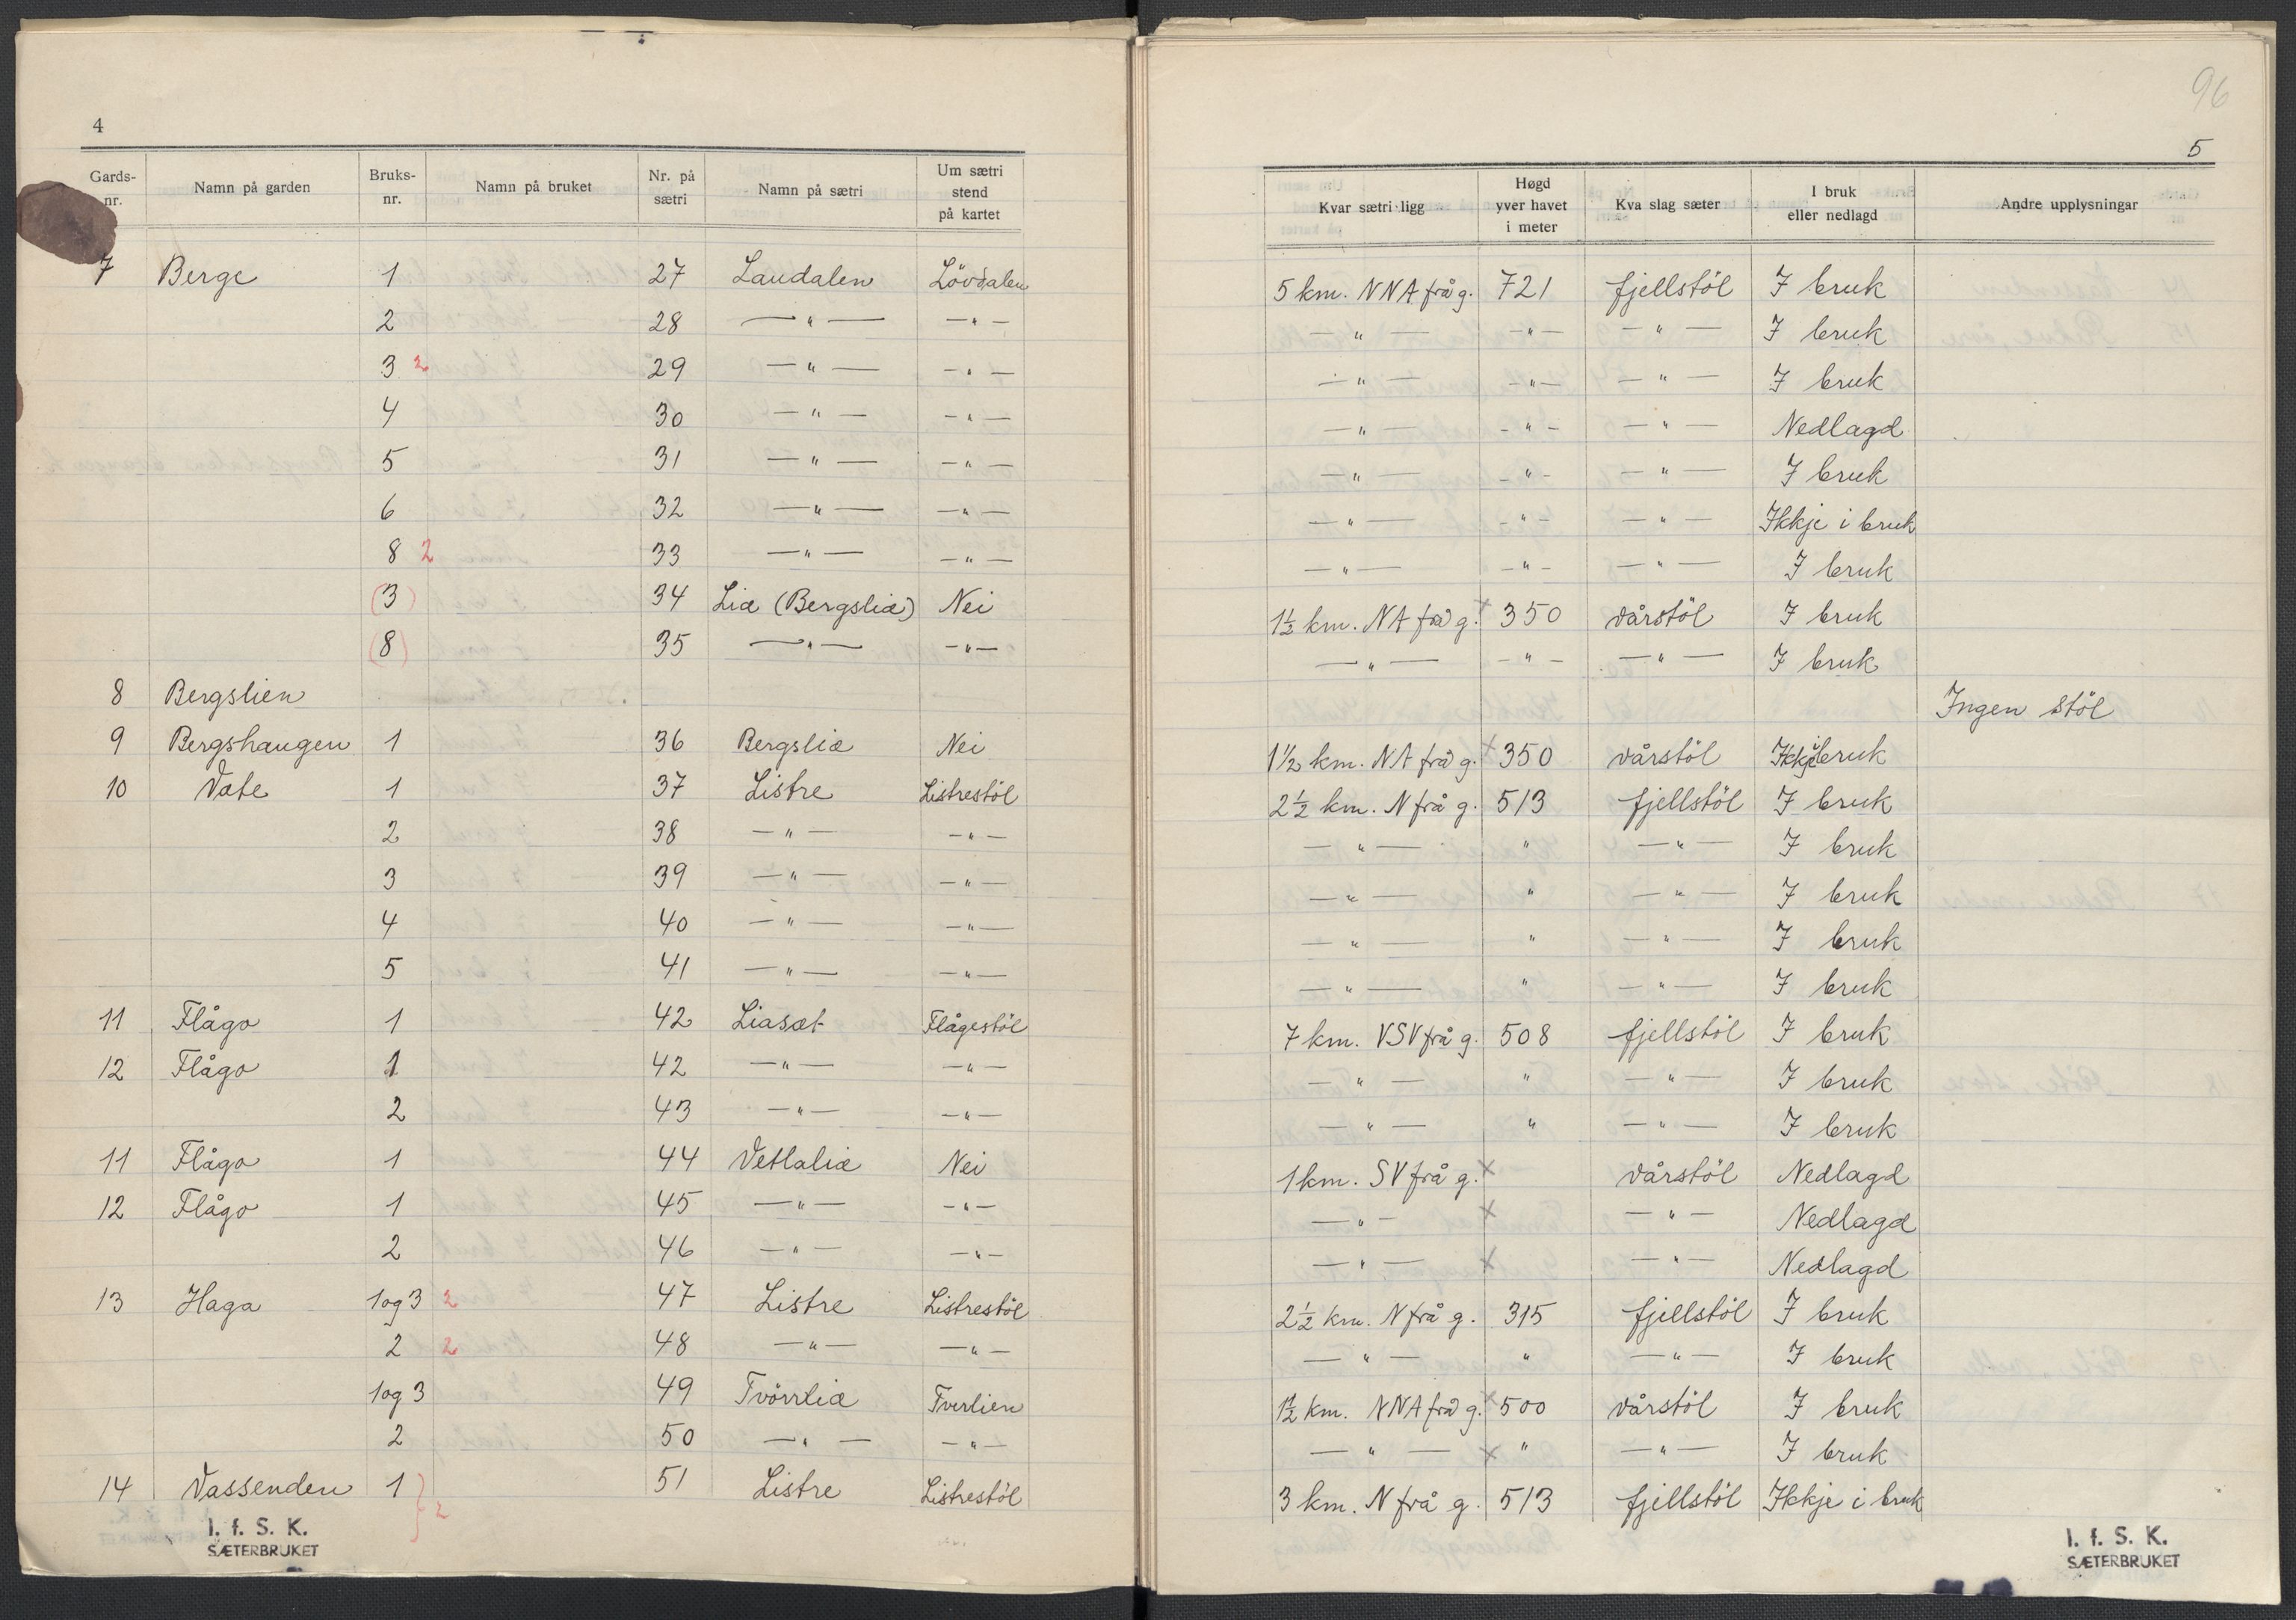 4
Gards-nr. Namn på garden Bruks-nr. Namn på bruket Nr. på sætri Namn på sætri Um sætri stend på kartet
7 Berge 1 27 Laudalen Lövdalen
2 28 — " — — " —
3 2 29 — " — — " —
4 30 — " — — " —
5 31 — " — — " —
6 32 — " — — " —
8 2 33 — " — — " —
(3) 34 Liæ (Bergsliæ) Nei
(8) 35 — " — — " —
8 Bergslien
9 Bergshaugen 1 36 Bergsliæ Nei
10 Vate 1 37 Listre Listrestöl
2 38 — " — — " —
3 39 — " — — " —
4 40 — " — — " —
5 41 — " — — " —
11 Flågo 1 42 Liasæt Flågestöl
12 Flågo 1 42 — " — — " —
2 43 — " — — " —
11 Flågo 1 44 Vetlaliæ Nei
12 Flågo 1 45 — " — — " —
2 46 — " — — " —
13 Haga 1 og 3 2 47 Listre Listrestöl
2 2 48 — " — — " —
1 og 3 49 Tvörrliæ Tverlien
2 50 — " — — " —
14 Vassenden 1 } 2 51 Listre Listrestöl
I. f. S. K.
SÆTERBRUKET
96
5
Kvar sætri ligg Høgd yver havet i meter Kva slag sæter I bruk eller nedlagd Andre upplysningar
5 km. NNA frå g. 721 fjellstöl I bruk
— " — — " — — " — I bruk
— " — — " — — " — I bruk
— " — — " — — " — Nedlagd
— " — — " — — " — I bruk
— " — — " — — " — Ikkje i bruk
— " — — " — — " — I bruk
1½ km. NA frå g. × 350 vårstöl I bruk
— " — — " — — " — I bruk
Ingen stöl
1½ km. NA frå g. × 350 vårstöl Ikkje i bruk
2½ km. N frå g. 513 fjellstöl I bruk
— " — " — " — I bruk
— " — " — " — I bruk
— " — " — " — I bruk
— " — " — " — I bruk
7 km. VSV frå g. 508 fjellstöl I bruk
— " — " — " — I bruk
— " — " — " — I bruk
1 km. SV frå g. × vårstöl Nedlagd
— " — × — " — Nedlagd
— " — × — " — Nedlagd
2½ km. N frå g. 315 fjellstöl I bruk
— " — " — " — I bruk
1½ km. NNA frå g. × 500 vårstöl I bruk
— " — × " — " — I bruk
3 km. N frå g. 513 fjellstöl Ikkje i bruk
I. f. S. K.
SÆTERBRUKET